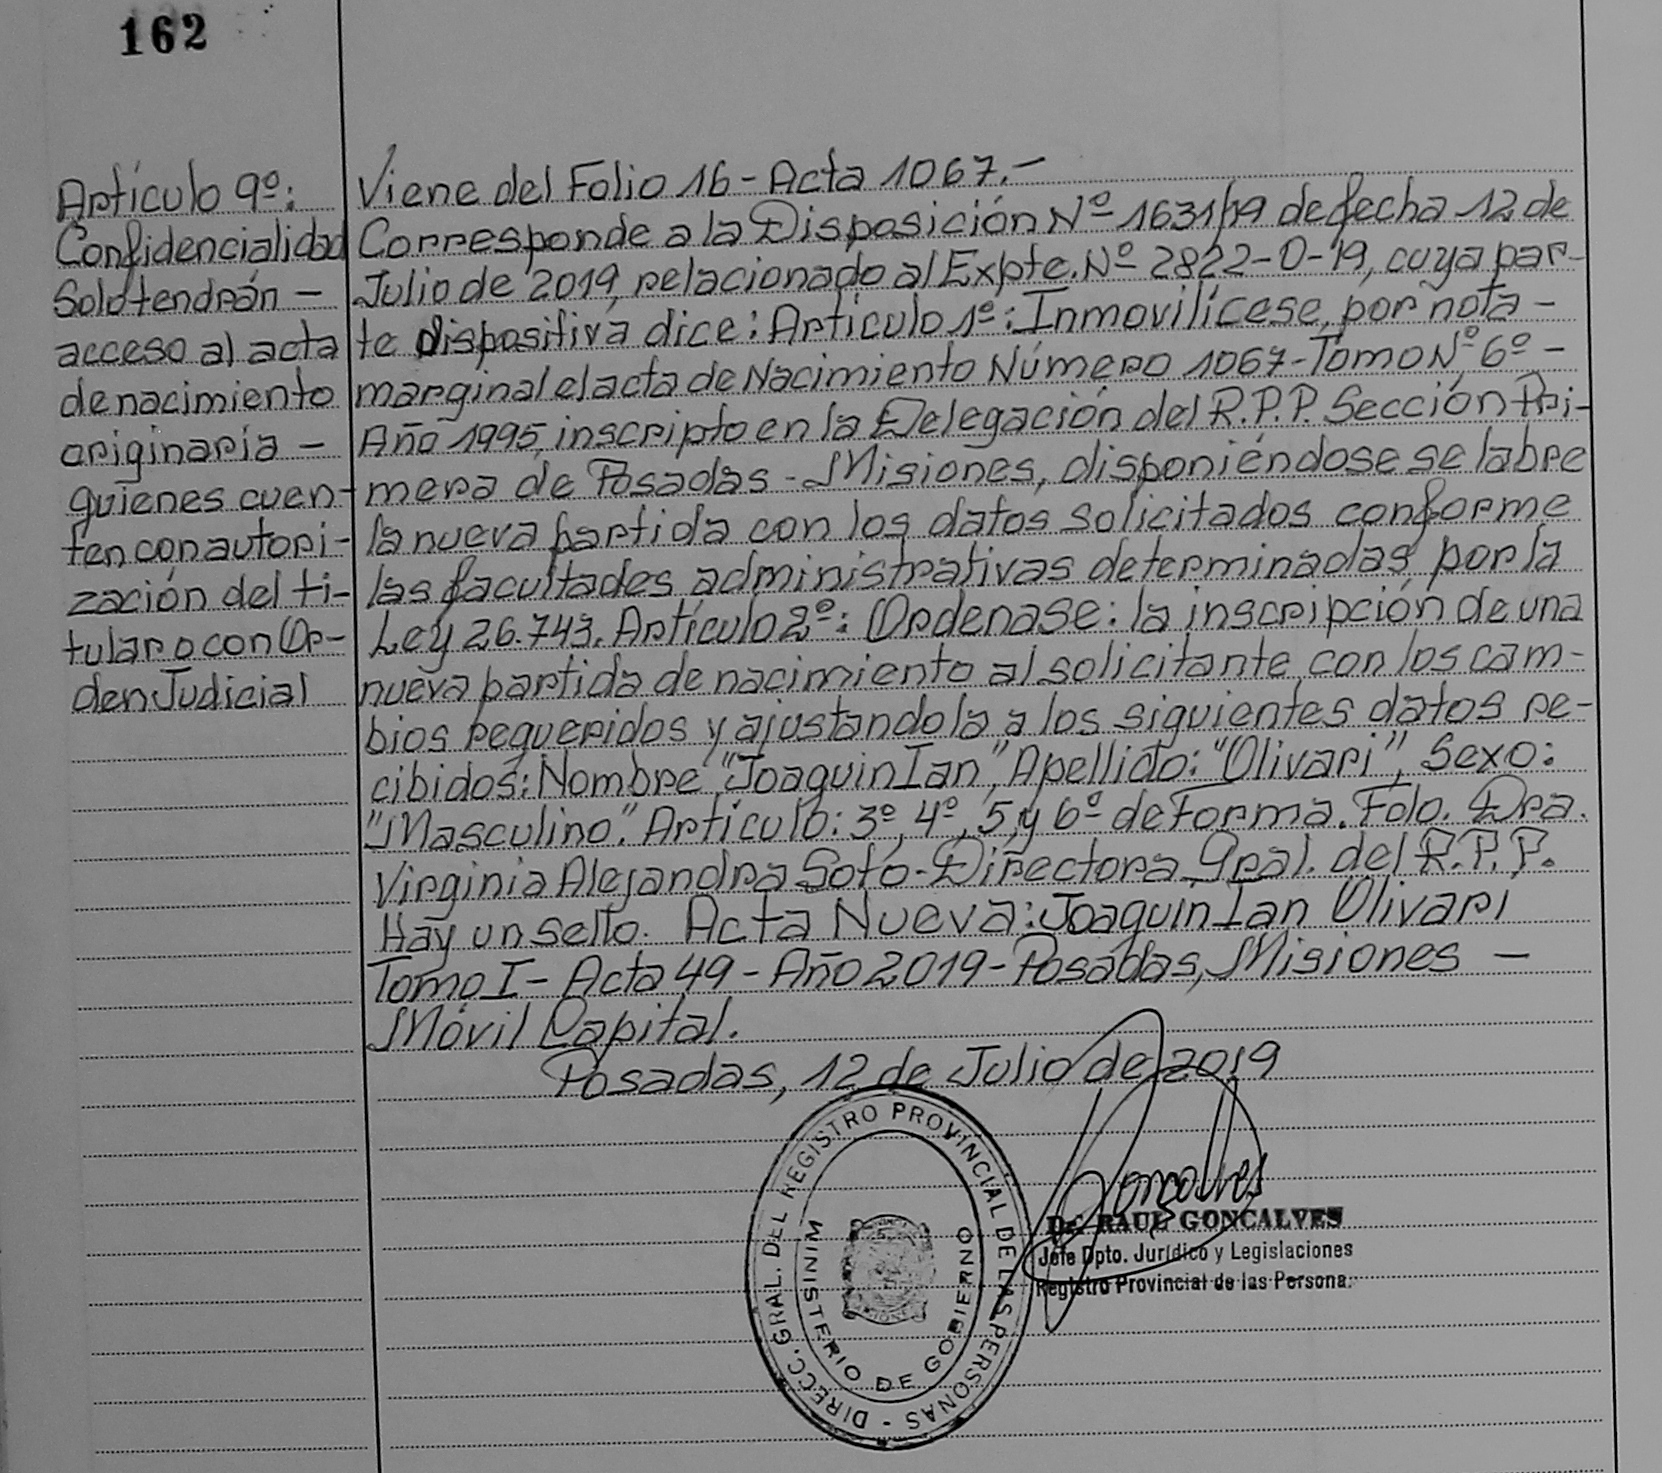 162
Artículo 9º:
Confidencialidad
Solo tendrán -
acceso al acta
de nacimiento
originaria -
quienes cuen-
ten con autori-
zación del ti-
tular o con Or-
den Judicial
Viene del Folio 16 - Acta 1067.-
Corresponde a la Disposición Nº 1631/19 de fecha 12 de
Julio de 2019, relacionado al Expte. Nº 2822-O-19, cuya par-
te dispositiva dice: Artículo 1º: Inmovilícese, por nota -
marginal el acta de Nacimiento Número 1067 - Tomo Nº 6º -
Año 1995, inscripto en la Delegación del R.P.P. Sección Pri-
mera de Posadas - Misiones, disponiéndose se labre
la nueva partida con los datos solicitados conforme
las facultades administrativas determinadas por la
Ley 26.743. Artículo 2º: Ordenase: la inscripción de una
nueva partida de nacimiento al solicitante, con los cam-
bios requeridos y ajustandola a los siguientes datos re-
cibidos: Nombre "Joaquin Ian", Apellido: "Olivari", Sexo:
"Masculino". Artículo: 3º, 4º, 5, y 6º de Forma. Fdo. Dra.
Virginia Alejandra Soto - Directora Gral. del R.P.P.
Hay un sello. Acta Nueva: Joaquin Ian Olivari
Tomo I - Acta 49 - Año 2019 - Posadas, Misiones -
Móvil Capital.
Posadas, 12 de Julio de 2019
DIRECC. GRAL. DEL REGISTRO PROVINCIAL DE LAS PERSONAS -
MINISTERIO DE GOBIERNO
Goncalves
Dr. RAUL GONCALVES
Jefe Dpto. Jurídico y Legislaciones
Registro Provincial de las Persona.